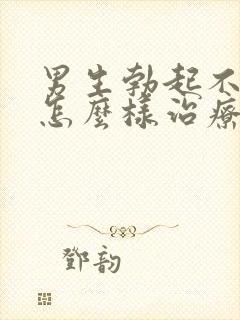 男生勃起不
怎麼樣治療
鄧韵